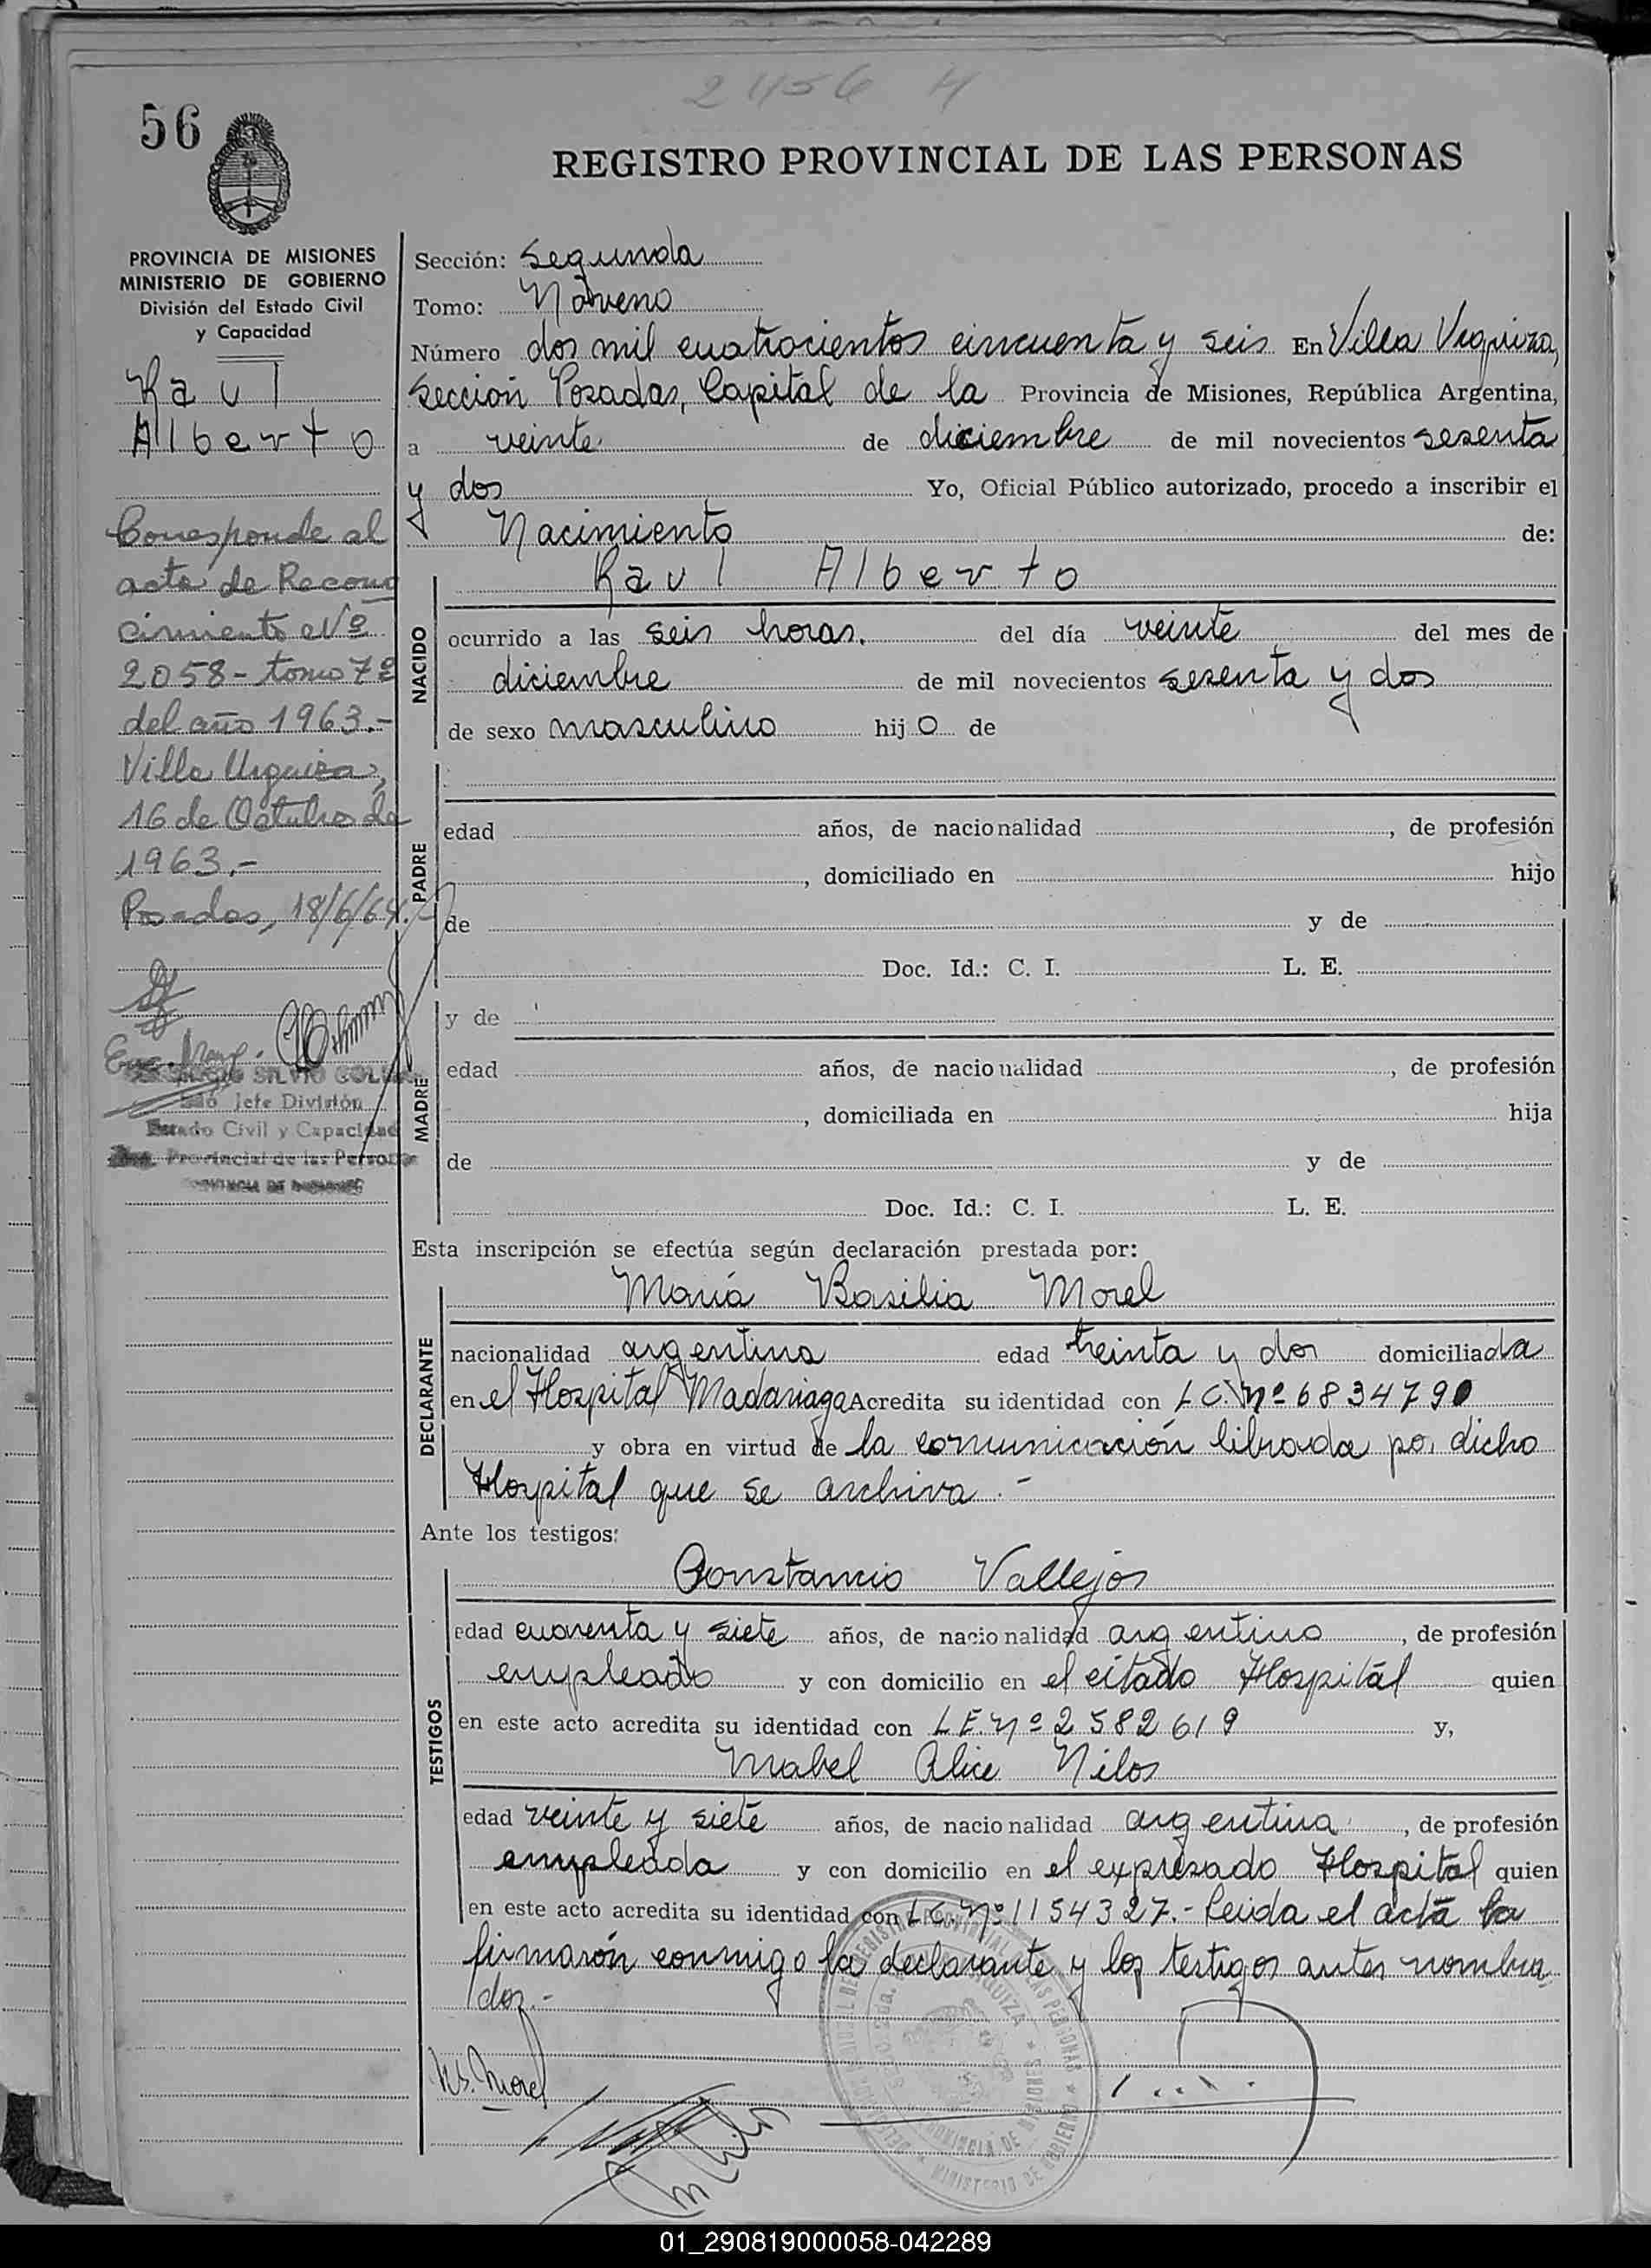 2456 H
56
REGISTRO PROVINCIAL DE LAS PERSONAS
PROVINCIA DE MISIONES
MINISTERIO DE GOBIERNO
División del Estado Civil
y Capacidad
Raul
Alberto
Corresponde al
acta de Recono
cimiento Nº
2058 - tomo 7º
del año 1963.-
Villa Urquiza,
16 de Octubre de
1963.-
Posadas, 18/6/64.-
SILVIO
Jefe División
Estado Civil y Capacidad
Provincial de las Personas
PROVINCIA DE MISIONES
Sección: Segunda
Tomo: Noveno
Número dos mil cuatrocientos cincuenta y seis En Villa Urquiza,
Sección Posadas, Capital de la Provincia de Misiones, República Argentina,
a veinte de diciembre de mil novecientos sesenta
y dos Yo, Oficial Público autorizado, procedo a inscribir el
Nacimiento de:
Raul Alberto
NACIDO
ocurrido a las seis horas. del día veinte del mes de
diciembre de mil novecientos sesenta y dos
de sexo masculino hijo de
PADRE
edad años, de nacionalidad , de profesión
, domiciliado en hijo
de y de
Doc. Id.: C. I. L. E.
MADRE
y de
edad años, de nacionalidad , de profesión
, domiciliada en hija
de y de
Doc. Id.: C. I. L. E.
Esta inscripción se efectúa según declaración prestada por:
DECLARANTE
María Basilia Morel
nacionalidad argentina edad treinta y dos domiciliada
en el Hospital Madariaga Acredita su identidad con L.C. Nº 6834790
y obra en virtud de la comunicación librada por dicho
Hospital que se archiva.-
Ante los testigos:
TESTIGOS
Constancio Vallejos
edad cuarenta y siete años, de nacionalidad argentino, de profesión
empleado y con domicilio en el citado Hospital quien
en este acto acredita su identidad con L.E. Nº 2582619 y,
Mabel Alice Nilos
edad veinte y siete años, de nacionalidad argentina, de profesión
empleada y con domicilio en el expresado Hospital quien
en este acto acredita su identidad con L.C. Nº 1154327.- Leida el acta la
firmarón conmigo la declarante y los testigos antes nombra
dos.-
Morel
MINISTERIO DE GOBIERNO
PROVINCIA DE MISIONES
01_290819000058-042289